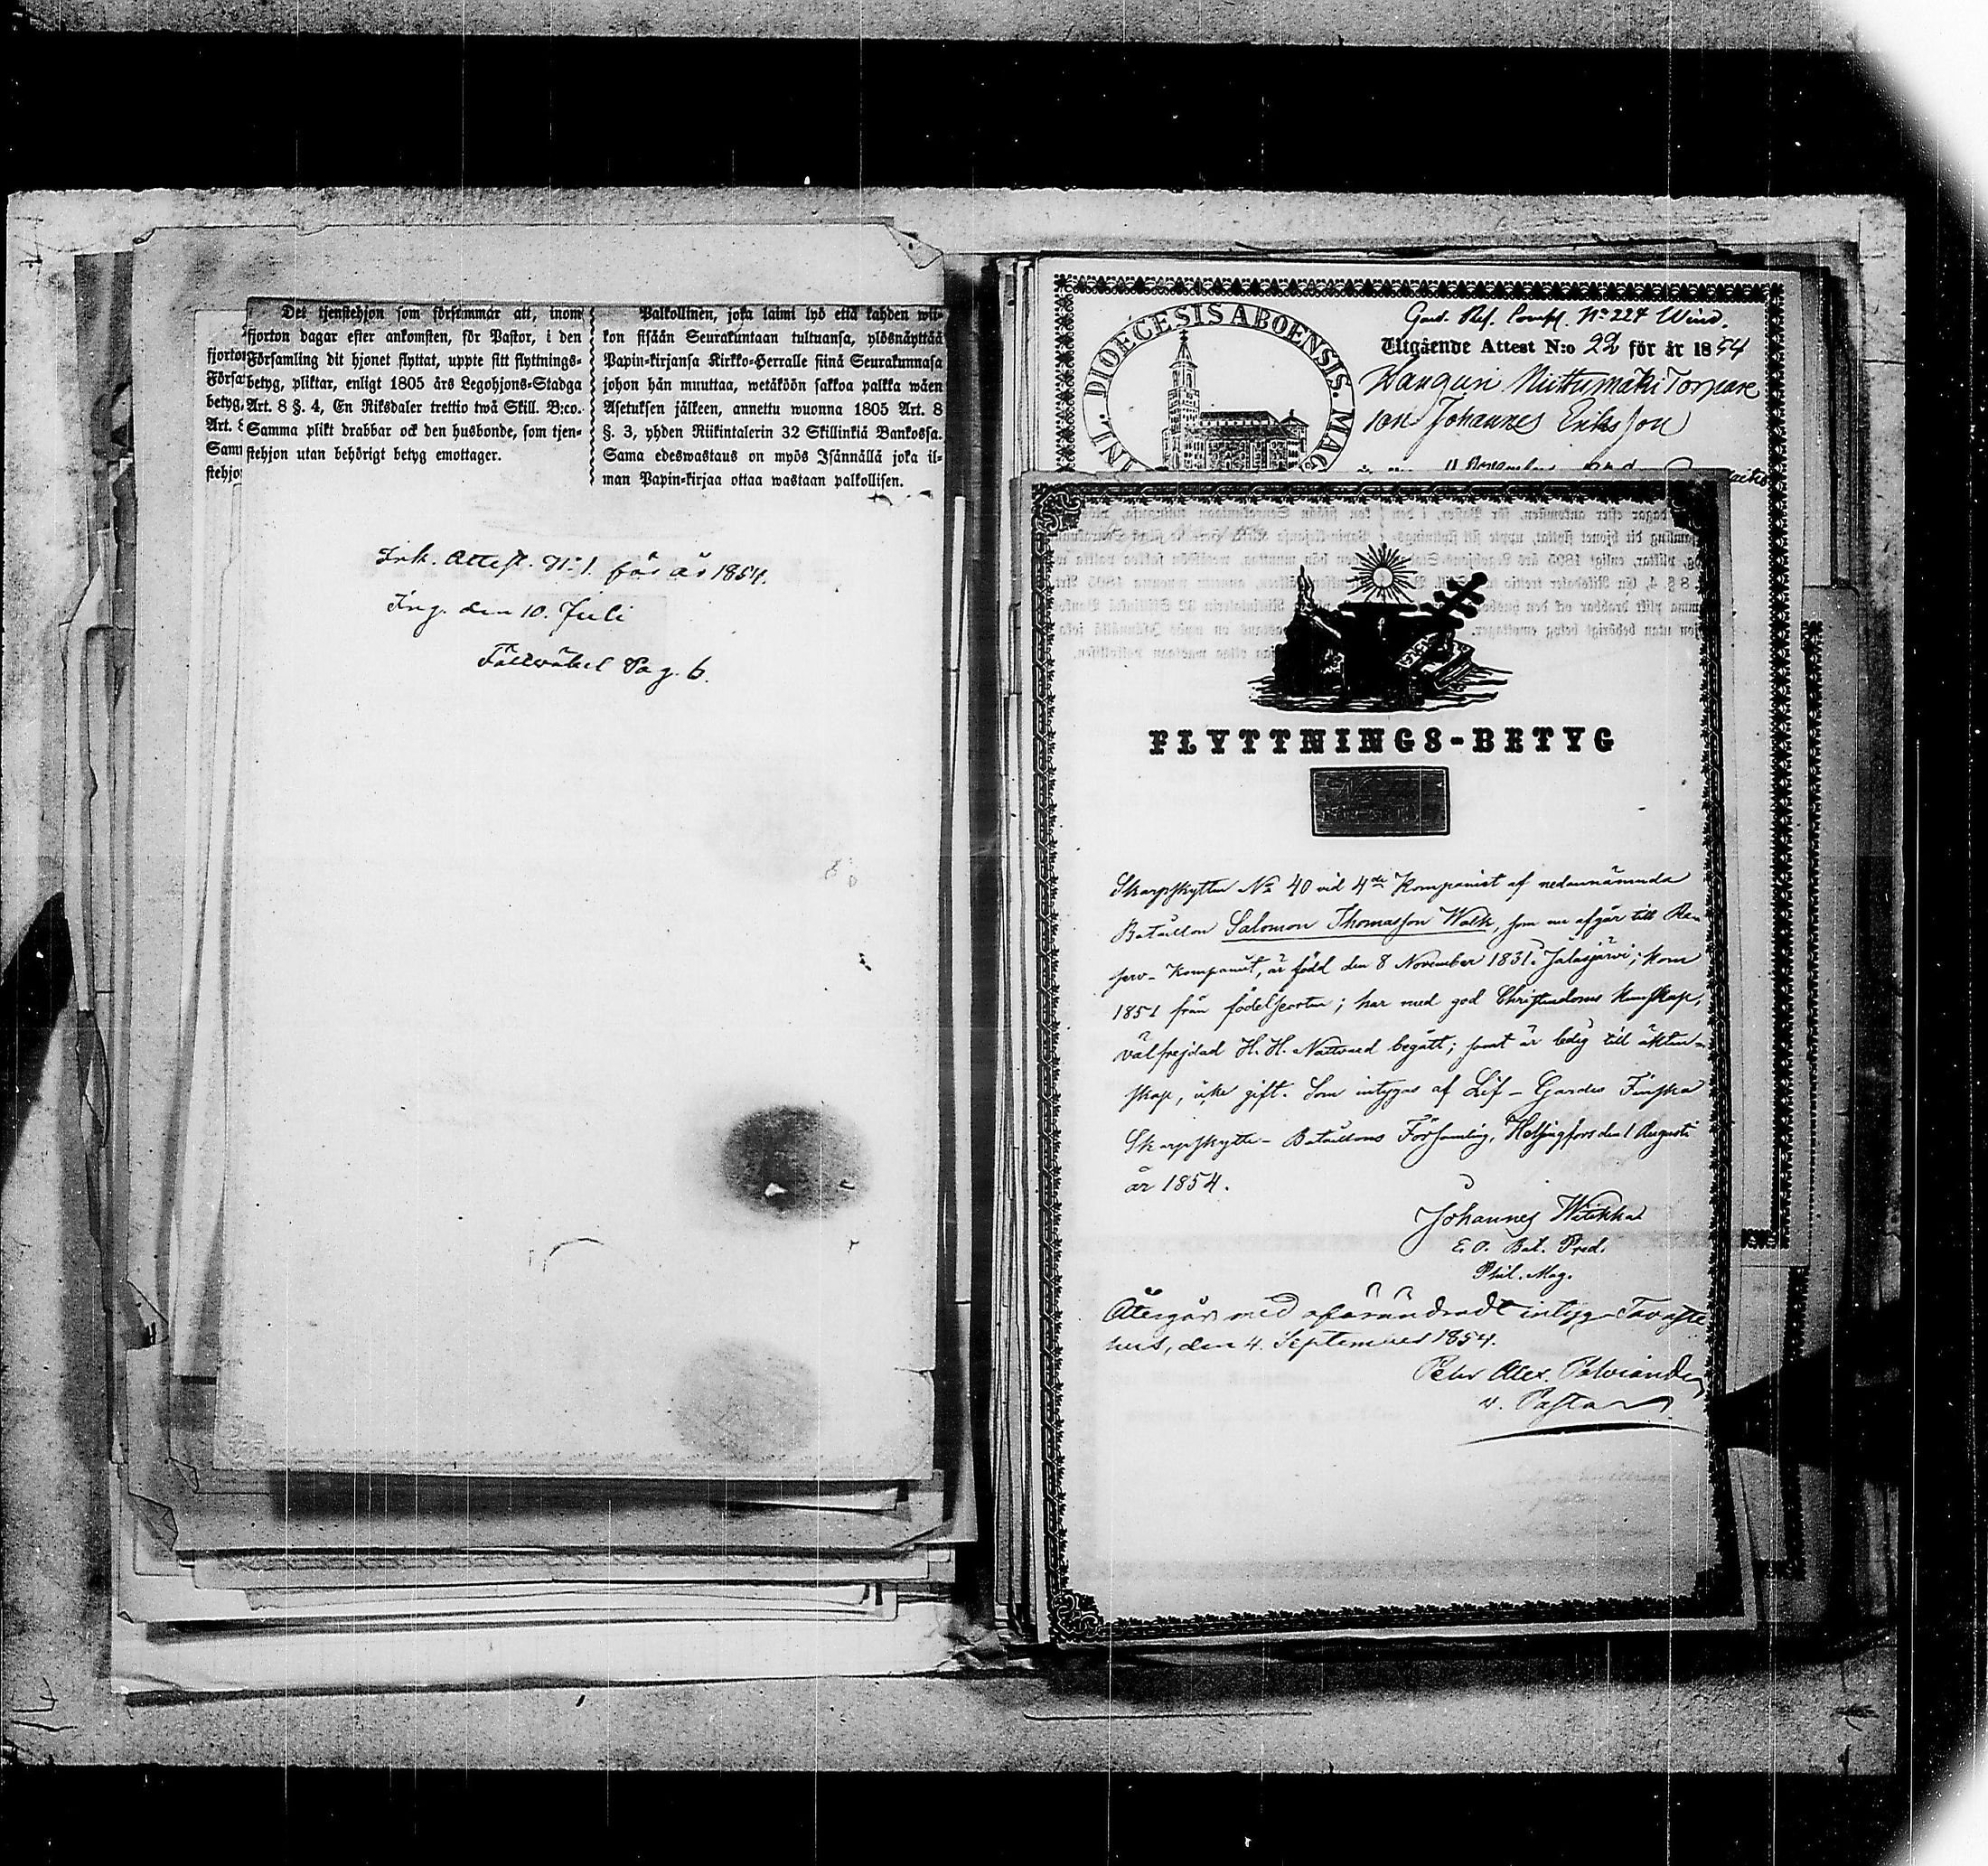 Det tjenstehjon som försummar att, inom
fjorton dagar efter ankomsten, för Pastor, i den
Församling dit hjonet flyttat, uppte sitt flyttnings-
betyg, pliktar, enligt 1805 års Legohjons-Stadga
Art. 8 §. 4, En Riksdaler trettio twå Skill. B:co.
Samma plikt drabbar ock den husbonde, som tjen-
stehjon utan behörigt betyg emottager.
Palkollinen, joka laimi lyö että kahden wii-
kon sisään Seurakuntaan tultuansa, ylösnäyttää
Papin-kirjansa Kirkko-Herralle siinä Seurakunnasa
johon hän muuttaa, wetäköön sakkoa palkka wäen
Asetuksen jälkeen, annettu wuonna 1805 Art. 8
§. 3, yhden Riikintalerin 32 Skillinkiä Bankossa.
Sama edeswastaus on myös Isännällä joka il-
man Papin-kirjaa ottaa wastaan palkollisen.
fjorton
Förſa
betyg,
Art. 8
Sam
stehjo
Ink. Attest. N:1. för år 1854.
Ing. den 10. Juli
Fältväbel Pag. 6.
DIOECESIS ABOENSIS. MAG
Gard. Res. Comp. No 224 Wind.
Utgående Attest N:o 22 för år 1854
Niittumäki Torpare
son Johannes Eriksson
FLYTTNINGS-BETYG
Skarpskytten No 40 vid 4de Kompaniet af nedannämnda
Bataillon Salomon Thomasson Walk, som nu afgår till Re-
serv-Kompaniet, är född den 8 November 1831 i Jalasjärvi; kom
1851 från födelseorten; har med god Christendoms kunskap,
välfrejdad H. H. Nattvard begått; samt är ledig till äkten-
skap, icke gift. Som intygas af Lif-Gardes Finska
Skarpskytte-Bataillons Församling, Helsingfors den 1 Augusti
år 1854.
Johannes Witikka
E. O. Bat. Pred.
Phil. Mag.
Återgår med oförändradt intyg. Tavaste
hus, den 4. September 1854.
Petr Alex.
v. Pastor